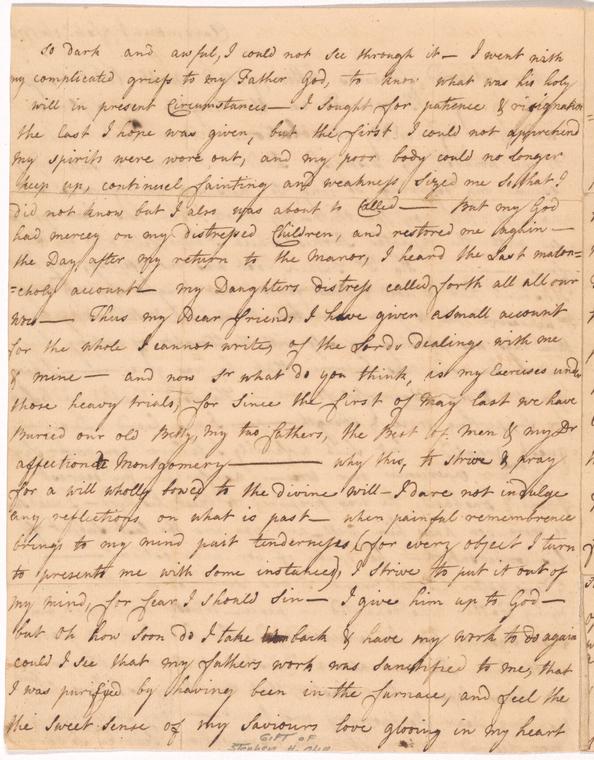 so dark and awful, I could not see through it — I went with
my complicated griefs to my Father God, to know what was his holy
will in present Circumstances — I sought for patience & resignation
the last I hope was given, but the first I could not apprehend
my spirits were wore out, and my poor body could no longer
keep up, continuel fainting and weakness sized me so that I
did not know but I also was about to Called — But my God
had mercey on my distressed Children, and restored me again —
the Day after my return to the Manor, I heard the last malon=
=choly account — my Daughters distress called forth all all our
— Thus my Dear friend, I have given a small account
for the whole I cannot write, of the Lords dealings with me
& mine — and now Sr what do you think, is my Exercises under
those heavy trials, for since the first of May last we have
Buried our old Betty, my two fathers, the Best of men & my Dr
affectionate Montgomery — why this, to strive & pray
for a will wholly bowed to the divine will — I dare not indulge
any reflections on what is past — when painful remembrence
brings to my mind past tendernesses, (for every object I turn
to presents me with some instance), I strive to put it out of
my mind, for fear I should sin — I give him up to God —
but oh how soon do I take him back & have my work to do again
could I see that my fathers work was sanctified to me, that
I was purifyed by having been in the furnace, and feel the
the sweet sense of my Saviours love glooing in my heart
GIFT OF
Stephen H.